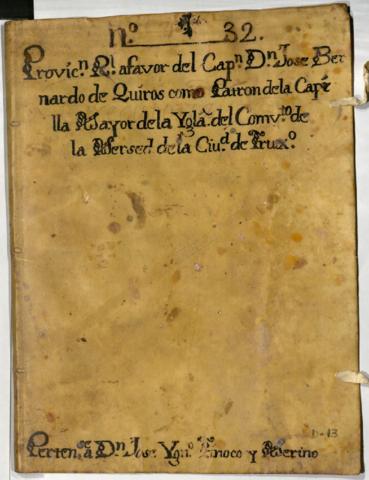 nº 32.
Provicⁿ Rˡ afavor del Capⁿ Dⁿ Jose Ber
nardo de Quiros como Patron dela Capi
lla Mayor dela Yglᵃ del Comvᵗᵒ de
la Mersed de la Ciuᵈ de Truxº
D-13
Dⁿ Jose Ygnº Tinoco y Merino